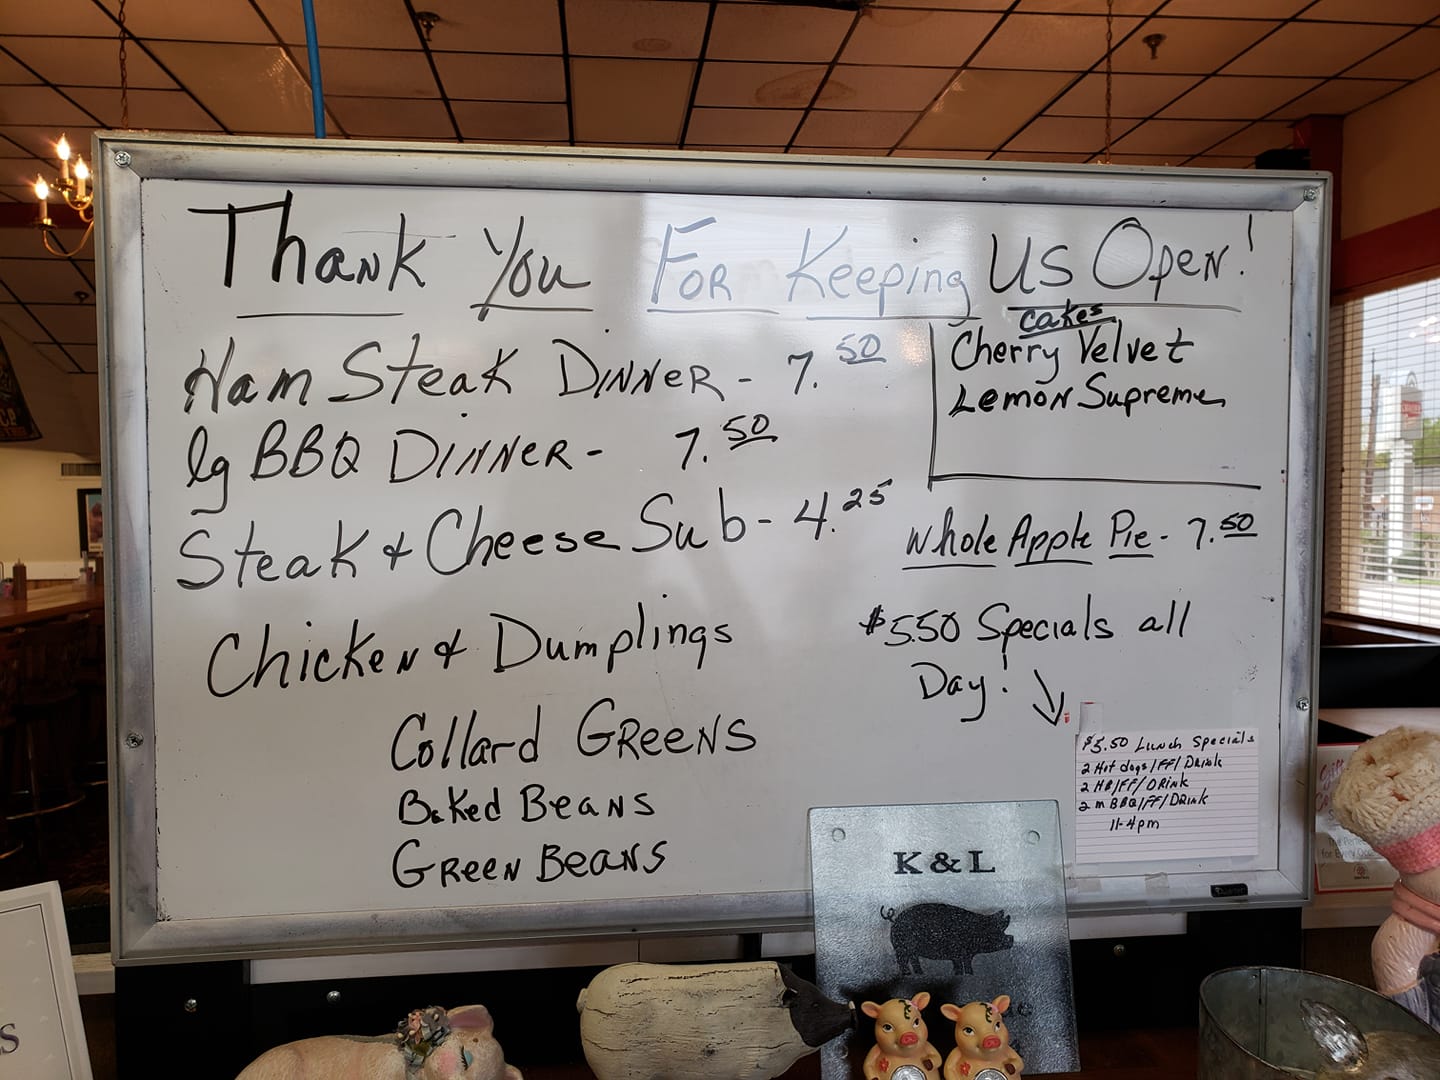 Thank You For Keeping Us Open!
Ham Steak Dinner - 7.50
lg BBQ Dinner - 7.50
Steak & Cheese Sub - 4.25
Chicken & Dumplings
Collard Greens
Baked Beans
Green Beans
cakes
Cherry Velvet
Lemon Supreme
Whole Apple Pie - 7.50
$5.50 Specials all
Day!
$5.50 Lunch Specials
2 Hot dogs/FF/Drink
2 HB/FF/DRink
2 m BBQ/FF/DRink
11-4pm
K & L